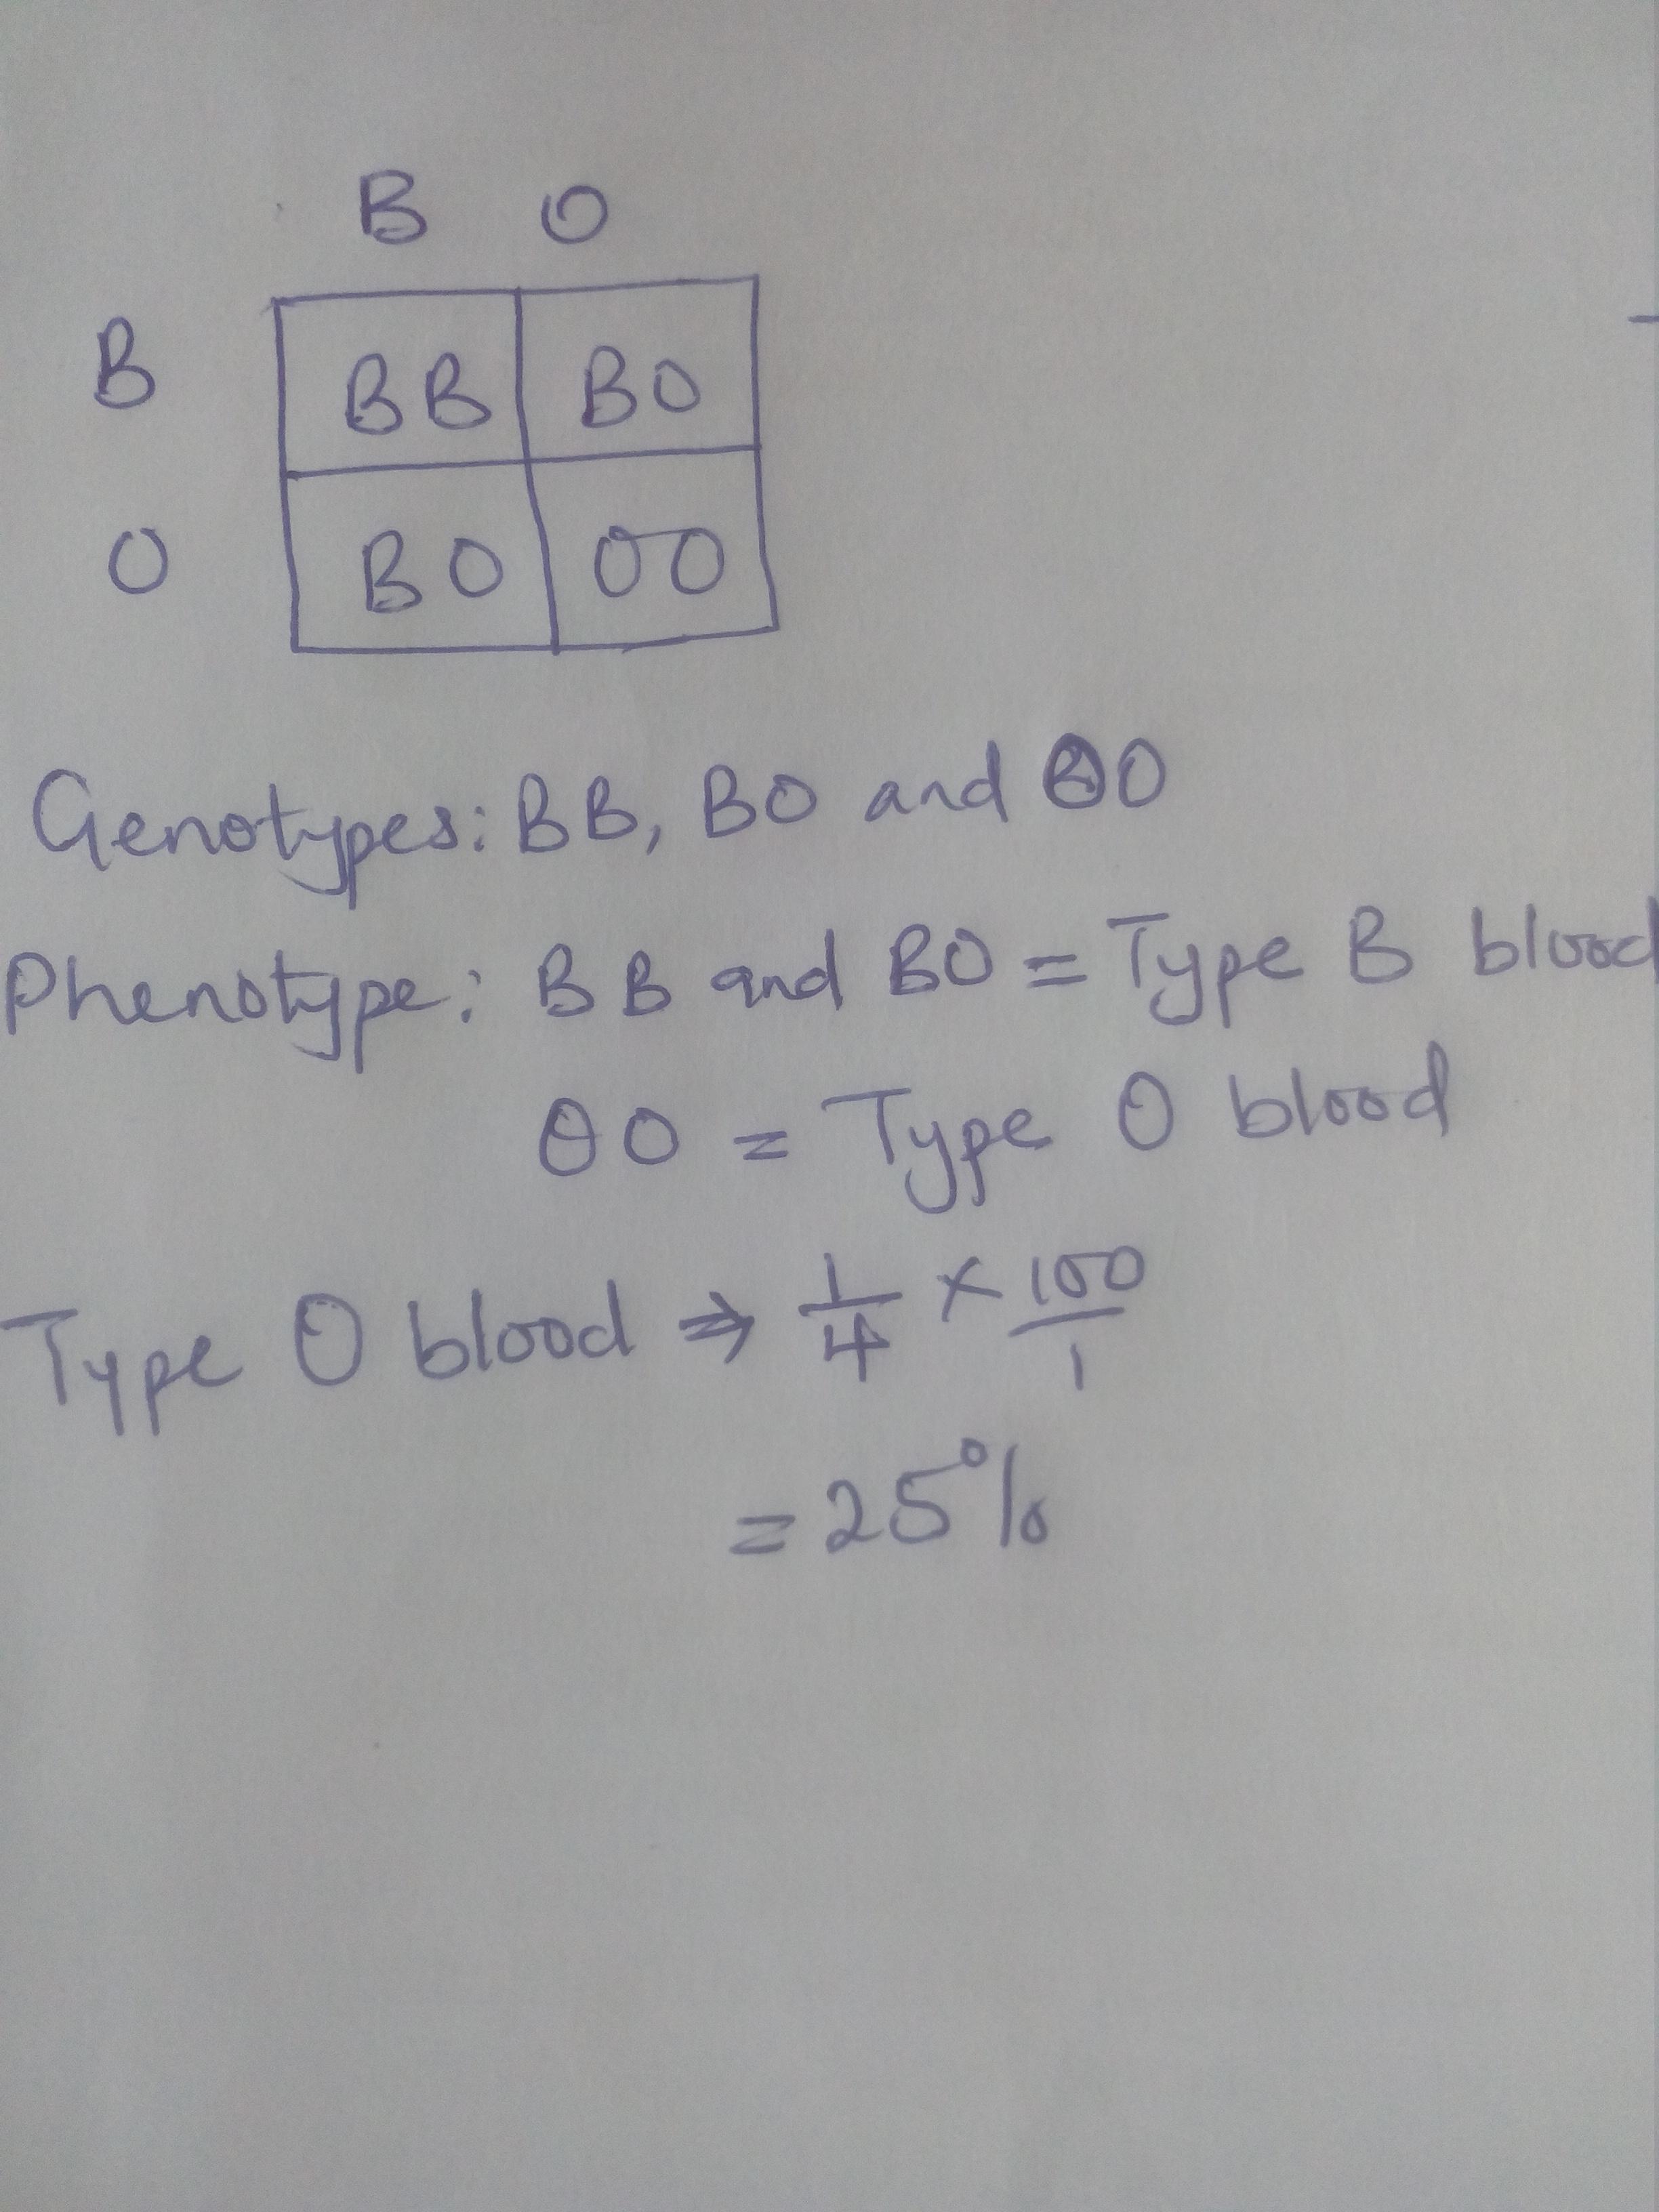 B O
B BB BO
O BO OO
Genotypes: BB, BO and OO
Phenotype: BB and BO = Type B blood
OO = Type O blood
Type O blood ⇒ 1/4 × 100/1
= 25%